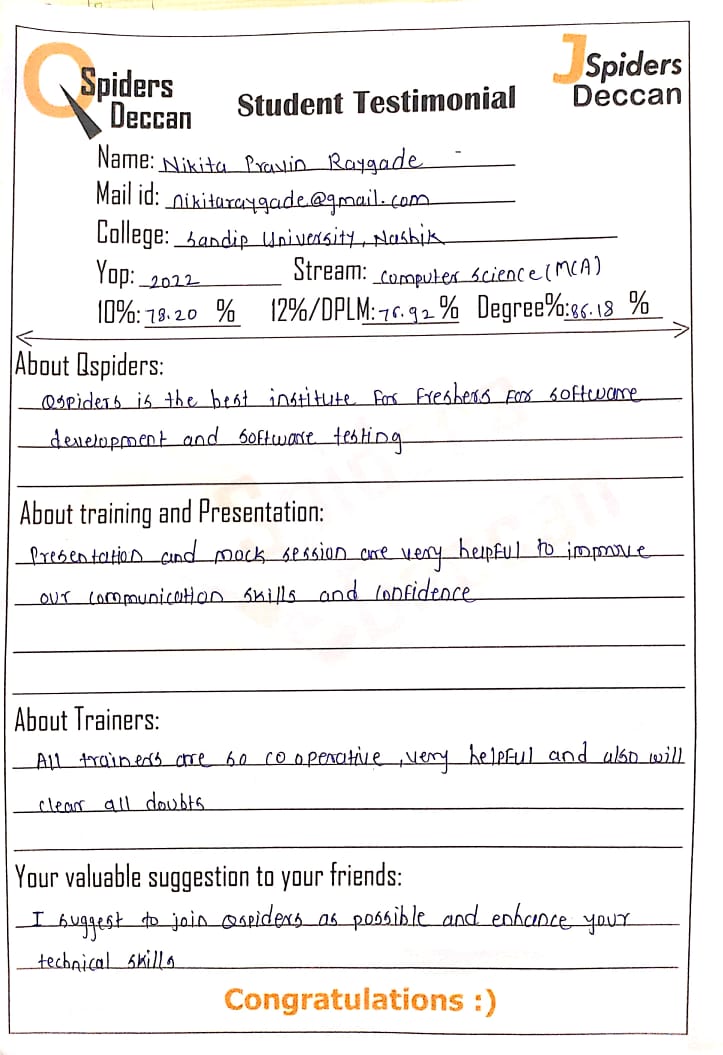 QSpiders Deccan
Student Testimonial
JSpiders Deccan
Name: Nikita Pravin Raygade
Mail id: nikitaraygade@gmail.com
College: Sandip University, Nashik
Yop: 2022 Stream: Computer Science (MCA)
10%: 78.20 % 12%/DPLM: 76.92 % Degree%: 86.18 %
About Qspiders:
Qspiders is the best institute for freshers for software
development and software testing
About training and Presentation:
Presentation and mock session are very helpful to improve
our communication skills and confidence
About Trainers:
All trainers are so co operative, very helpful and also will
clear all doubts
Your valuable suggestion to your friends:
I suggest to join Qspiders as possible and enhance your
technical skills
Congratulations :)